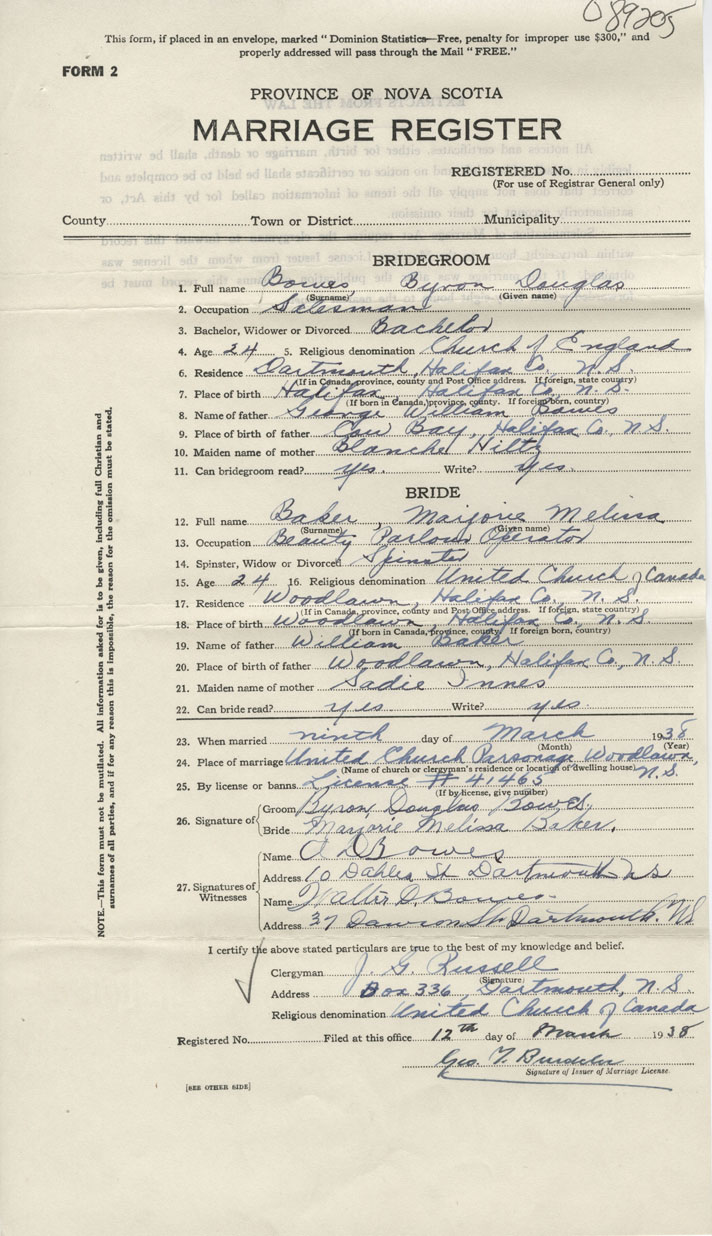 089205
This form, if placed in an envelope, marked "Dominion Statistics—Free, penalty for improper use $300," and
properly addressed will pass through the Mail "FREE."
FORM 2
PROVINCE OF NOVA SCOTIA
MARRIAGE REGISTER
REGISTERED No.
(For use of Registrar General only)
County Town or District Municipality
BRIDEGROOM
1. Full name Bowes, Byron Douglas
(Surname) (Given name)
2. Occupation Salesman
3. Bachelor, Widower or Divorced Bachelor
4. Age 24 5. Religious denomination Church of England
6. Residence Dartmouth, Halifax Co., N.S.
(If in Canada, province, county and Post Office address. If foreign, state country)
7. Place of birth Halifax, Halifax Co., N.S.
(If born in Canada, province, county. If foreign born, country)
8. Name of father George William Bowes
9. Place of birth of father Cow Bay, Halifax Co., N.S.
10. Maiden name of mother Blanche Hiltz
11. Can bridegroom read? yes. Write? yes.
BRIDE
12. Full name Baker, Marjorie Melissa
(Surname) (Given name)
13. Occupation Beauty Parlour Operator
14. Spinster, Widow or Divorced Spinster
15. Age 24 16. Religious denomination United Church of Canada
17. Residence Woodlawn, Halifax Co., N.S.
(If in Canada, province, county and Post Office address. If foreign, state country)
18. Place of birth Woodlawn, Halifax Co., N.S.
(If born in Canada, province, county. If foreign born, country)
19. Name of father William Baker
20. Place of birth of father Woodlawn, Halifax Co., N.S.
21. Maiden name of mother Sadie Innes
22. Can bride read? yes. Write? yes.
23. When married ninth day of March 1938
(Month) (Year)
24. Place of marriage United Church Parsonage Woodlawn, N.S.
(Name of church or clergyman's residence or location of dwelling house)
25. By license or banns License # 41465
(If by license, give number)
26. Signature of Groom Byron Douglas Bowes.
Bride Marjorie Melissa Baker.
27. Signatures of Witnesses
Name Bowes
Address 10 Dahlia St Dartmouth NS
Name Walter D. Bowes.
Address 37 Dawson St. Dartmouth. NS
I certify the above stated particulars are true to the best of my knowledge and belief.
Clergyman J. G. Russell
(Signature)
Address Box 336, Dartmouth, N.S.
Religious denomination United Church of Canada
Registered No. Filed at this office 12th day of March 1938
Geo. T.
Signature of Issuer of Marriage License.
[SEE OTHER SIDE]
NOTE.—This form must not be mutilated. All information asked for is to be given, including full Christian and
surnames of all parties, and if for any reason this is impossible, the reason for the omission must be stated.